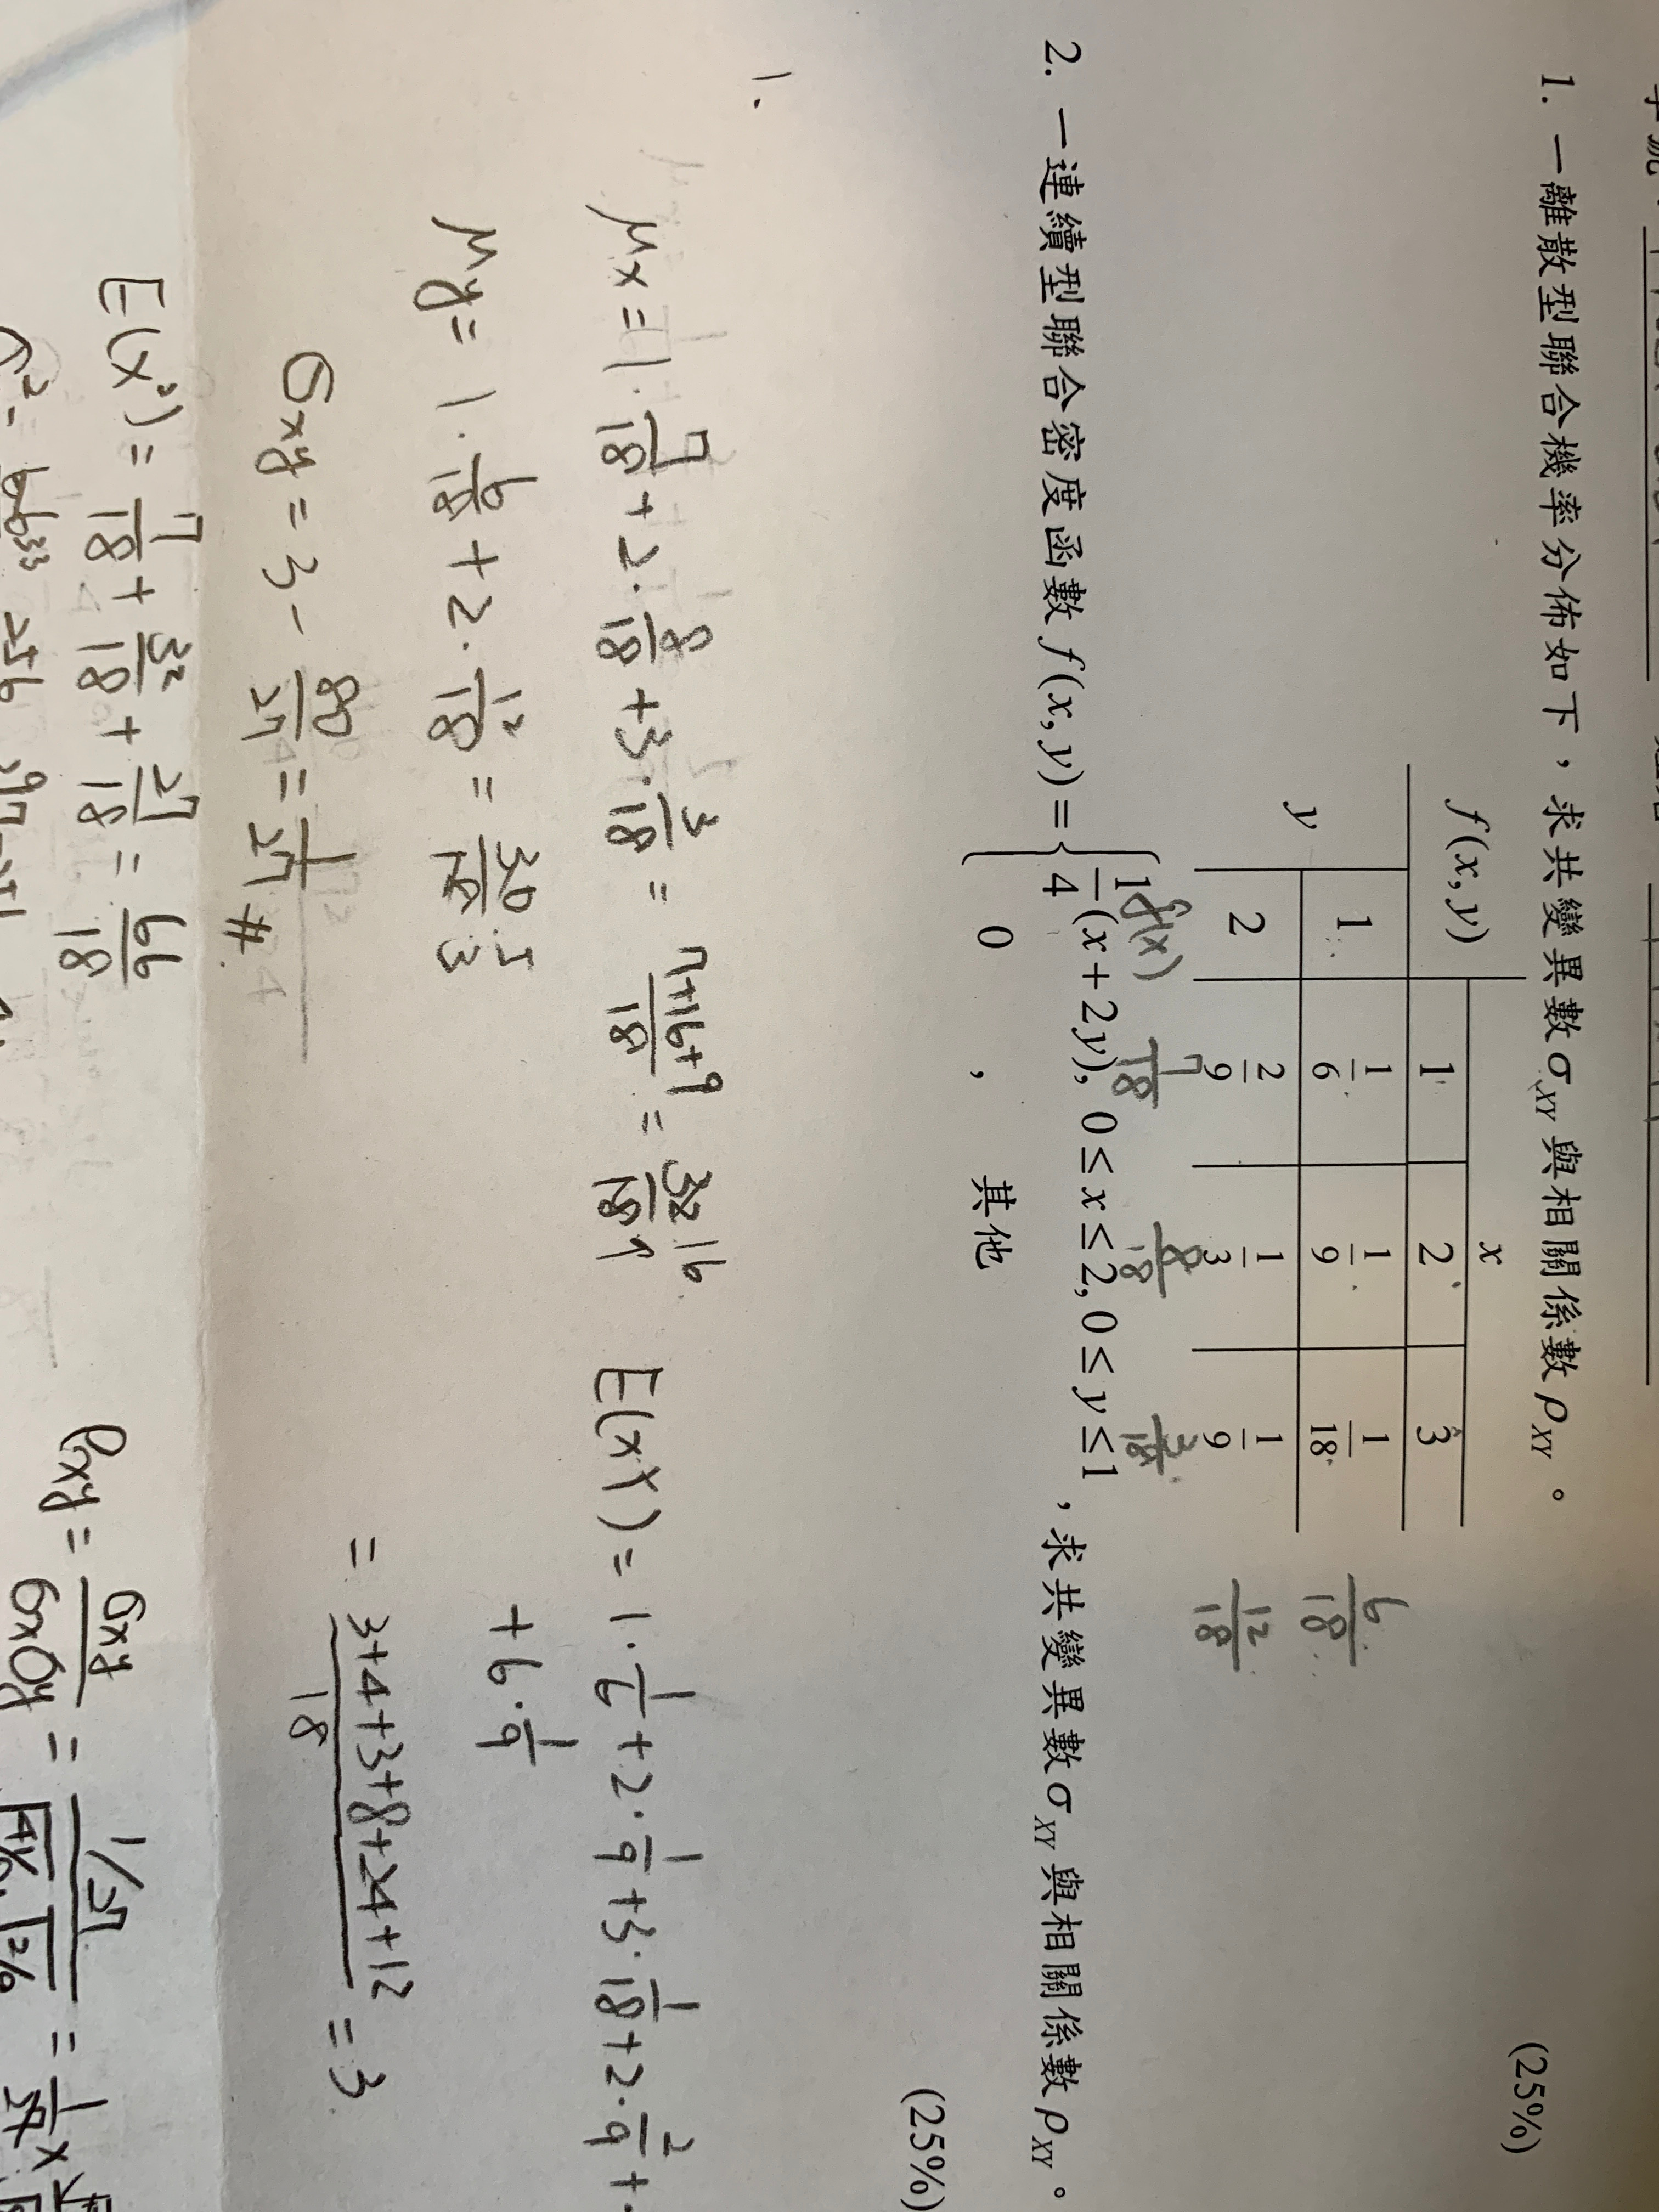 1. 一離散型聯合機率分佈如下，求共變異數σXY與相關係數ρXY。 (25%)
f(x, y) x
1 2 3
y 1 1/6 1/9 1/18 6/18
2 2/9 1/3 1/9 12/18
f(x) 7/18 8/18 3/18
2. 一連續型聯合密度函數 f(x, y) = { 1/4 (x + 2y), 0 ≤ x ≤ 2, 0 ≤ y ≤ 1 ，求共變異數σXY與相關係數ρXY。
0 , 其他 (25%)
1.
μx = 1·7/18 + 2·8/18 + 3·3/18 = 7+16+9/18 = 32/18 16/9
E(XY) = 1·1/6 + 2·1/9 + 3·1/18 + 2·2/9 +
+ 6·1/9
μy = 1·6/18 + 2·12/18 = 30/18 5/3
= 3+4+3+8+24+12/18 = 3
σxy = 3 - 80/27 = 1/27 #
E(x²) = 7/18 + 32/18 + 27/18 = 66/18
ρxy = σxy/σxσy = 1/27